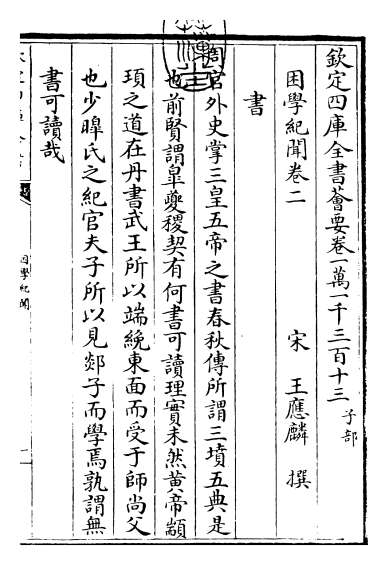 欽定四庫全書薈要卷一萬一千三百十三 子部
困學紀聞卷二
宋 王應麟 撰
書
周官外史掌三皇五帝之書春秋傳所謂三墳五典是
也前賢謂皐夔稷契有何書可讀理實未然黄帝顓
頊之道在丹書武王所以端絻東面而受于師尚父
也少皥氏之紀官夫子所以見郯子而學焉孰謂無
書可讀哉
困學紀聞